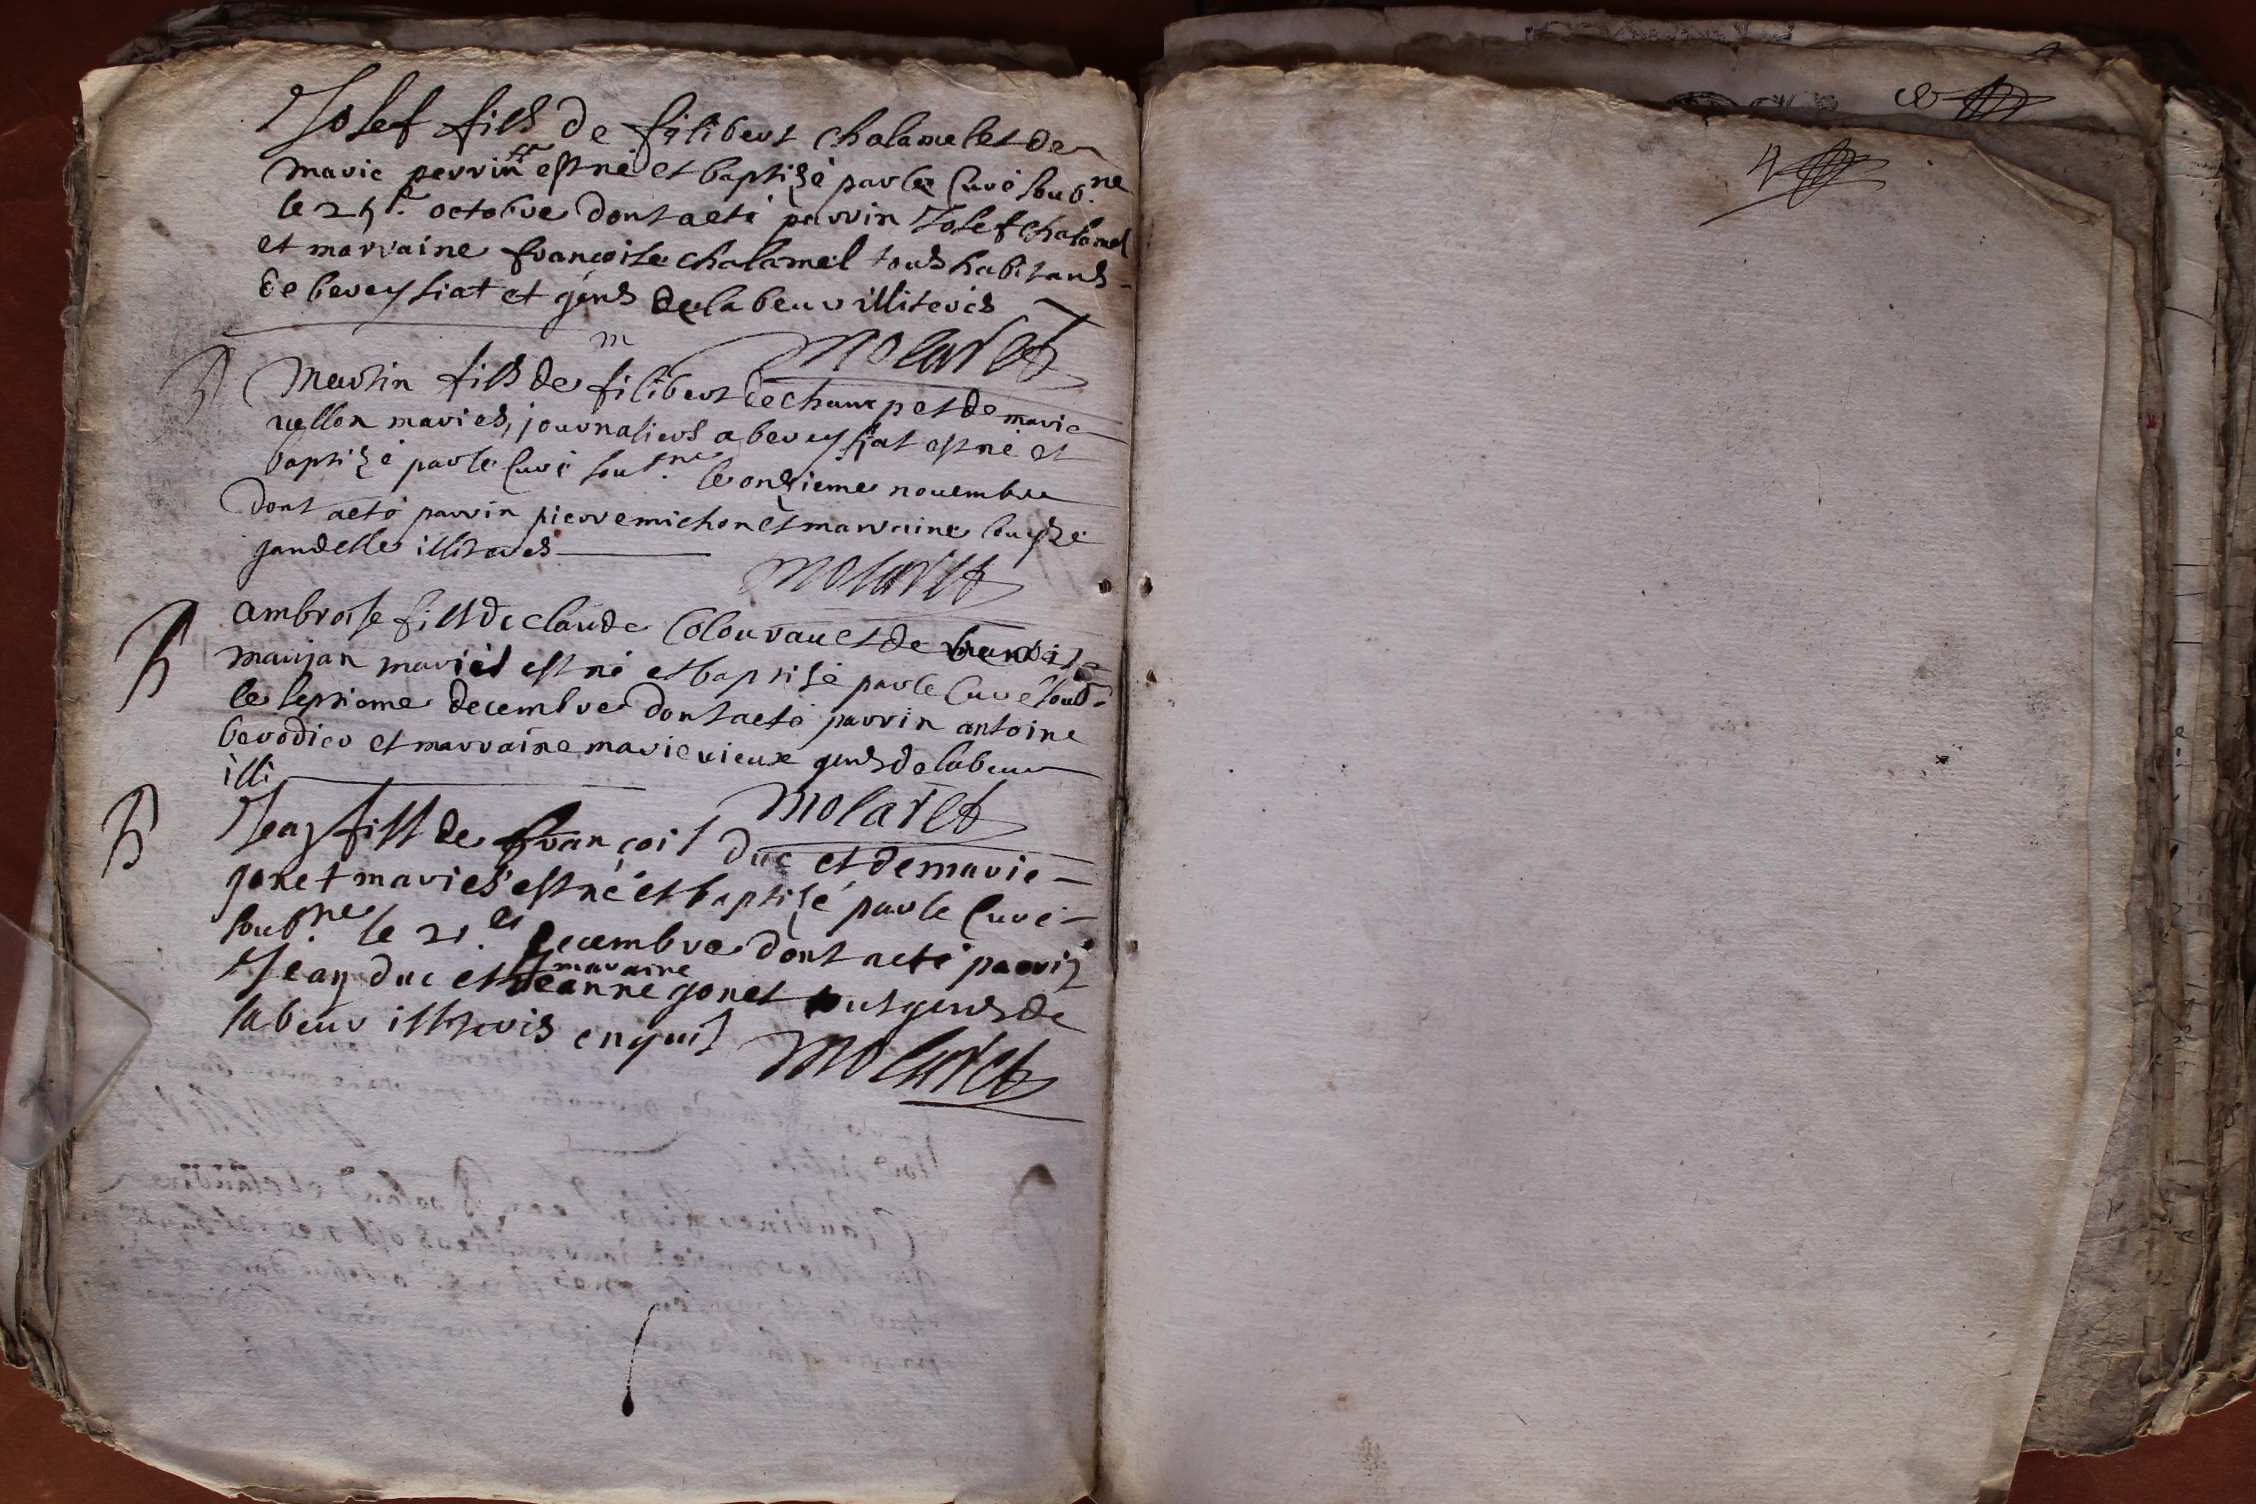 Josef fils de filibert chalamel et de
marie perrin est né et baptizé par le Curé soub.ne
le 25.e octobre dont acte parrin Josef chalamel
et marraine françoise chalamel tous habitans
de bereysiat et gens de labeur illiterés
molaret
B
m
Martin fils de filibert dechamp et de marie
vellon mariés, journaliers a bereysiat est né et
baptizé par le Curé sous.ne le onzieme novembre
dont acte parrin pierre michon et marraine
gandelle illiterés
molaret
B
ambroise fils de claude Colourau et de
maujan mariés est né et baptisé par le Curé soub.
le septieme decembre dont acte parrin antoine
berodier et marraine marie vieux gens de labeur
illi
molaret
B
Jean fils de françois duc et de marie
gonet mariés est né et baptizé par le Curé
soub.ne le 21.e decembre dont acte parrin
Jean duc et marraine Jeanne gonet tous gens de
labeur illiterés enquis
molaret
4